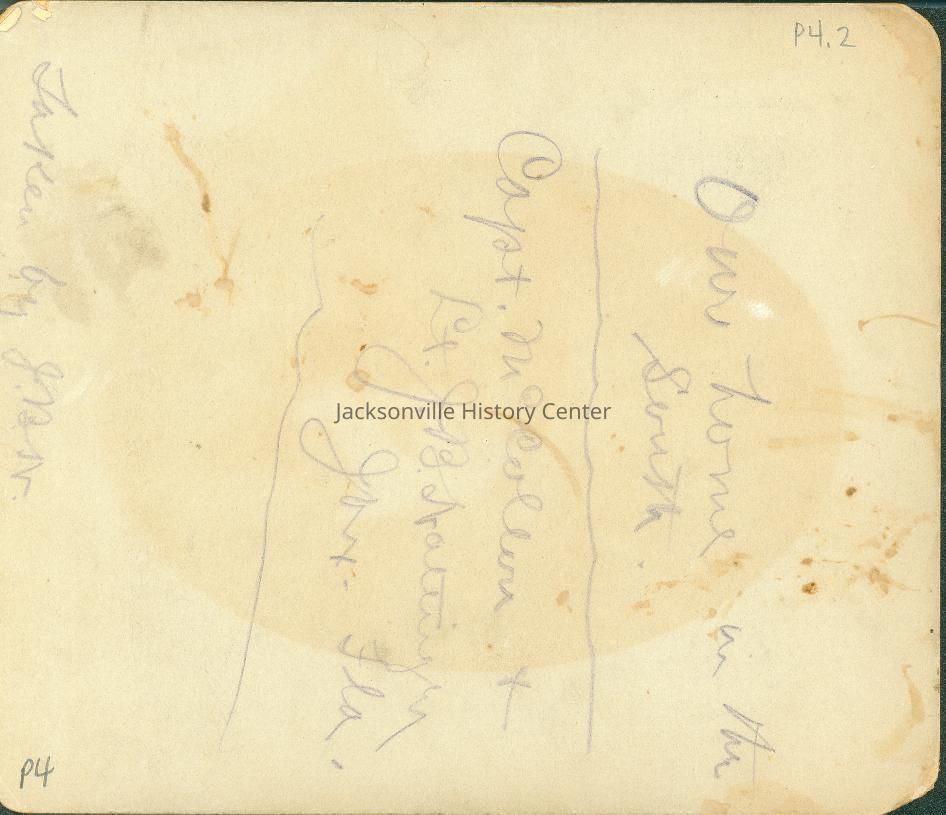 P4.2
Our home in the
South.
Capt. McCollum +
Lt. J.B.
Jax. Fla.
Taken by J.B.N.
P4
Jacksonville History Center